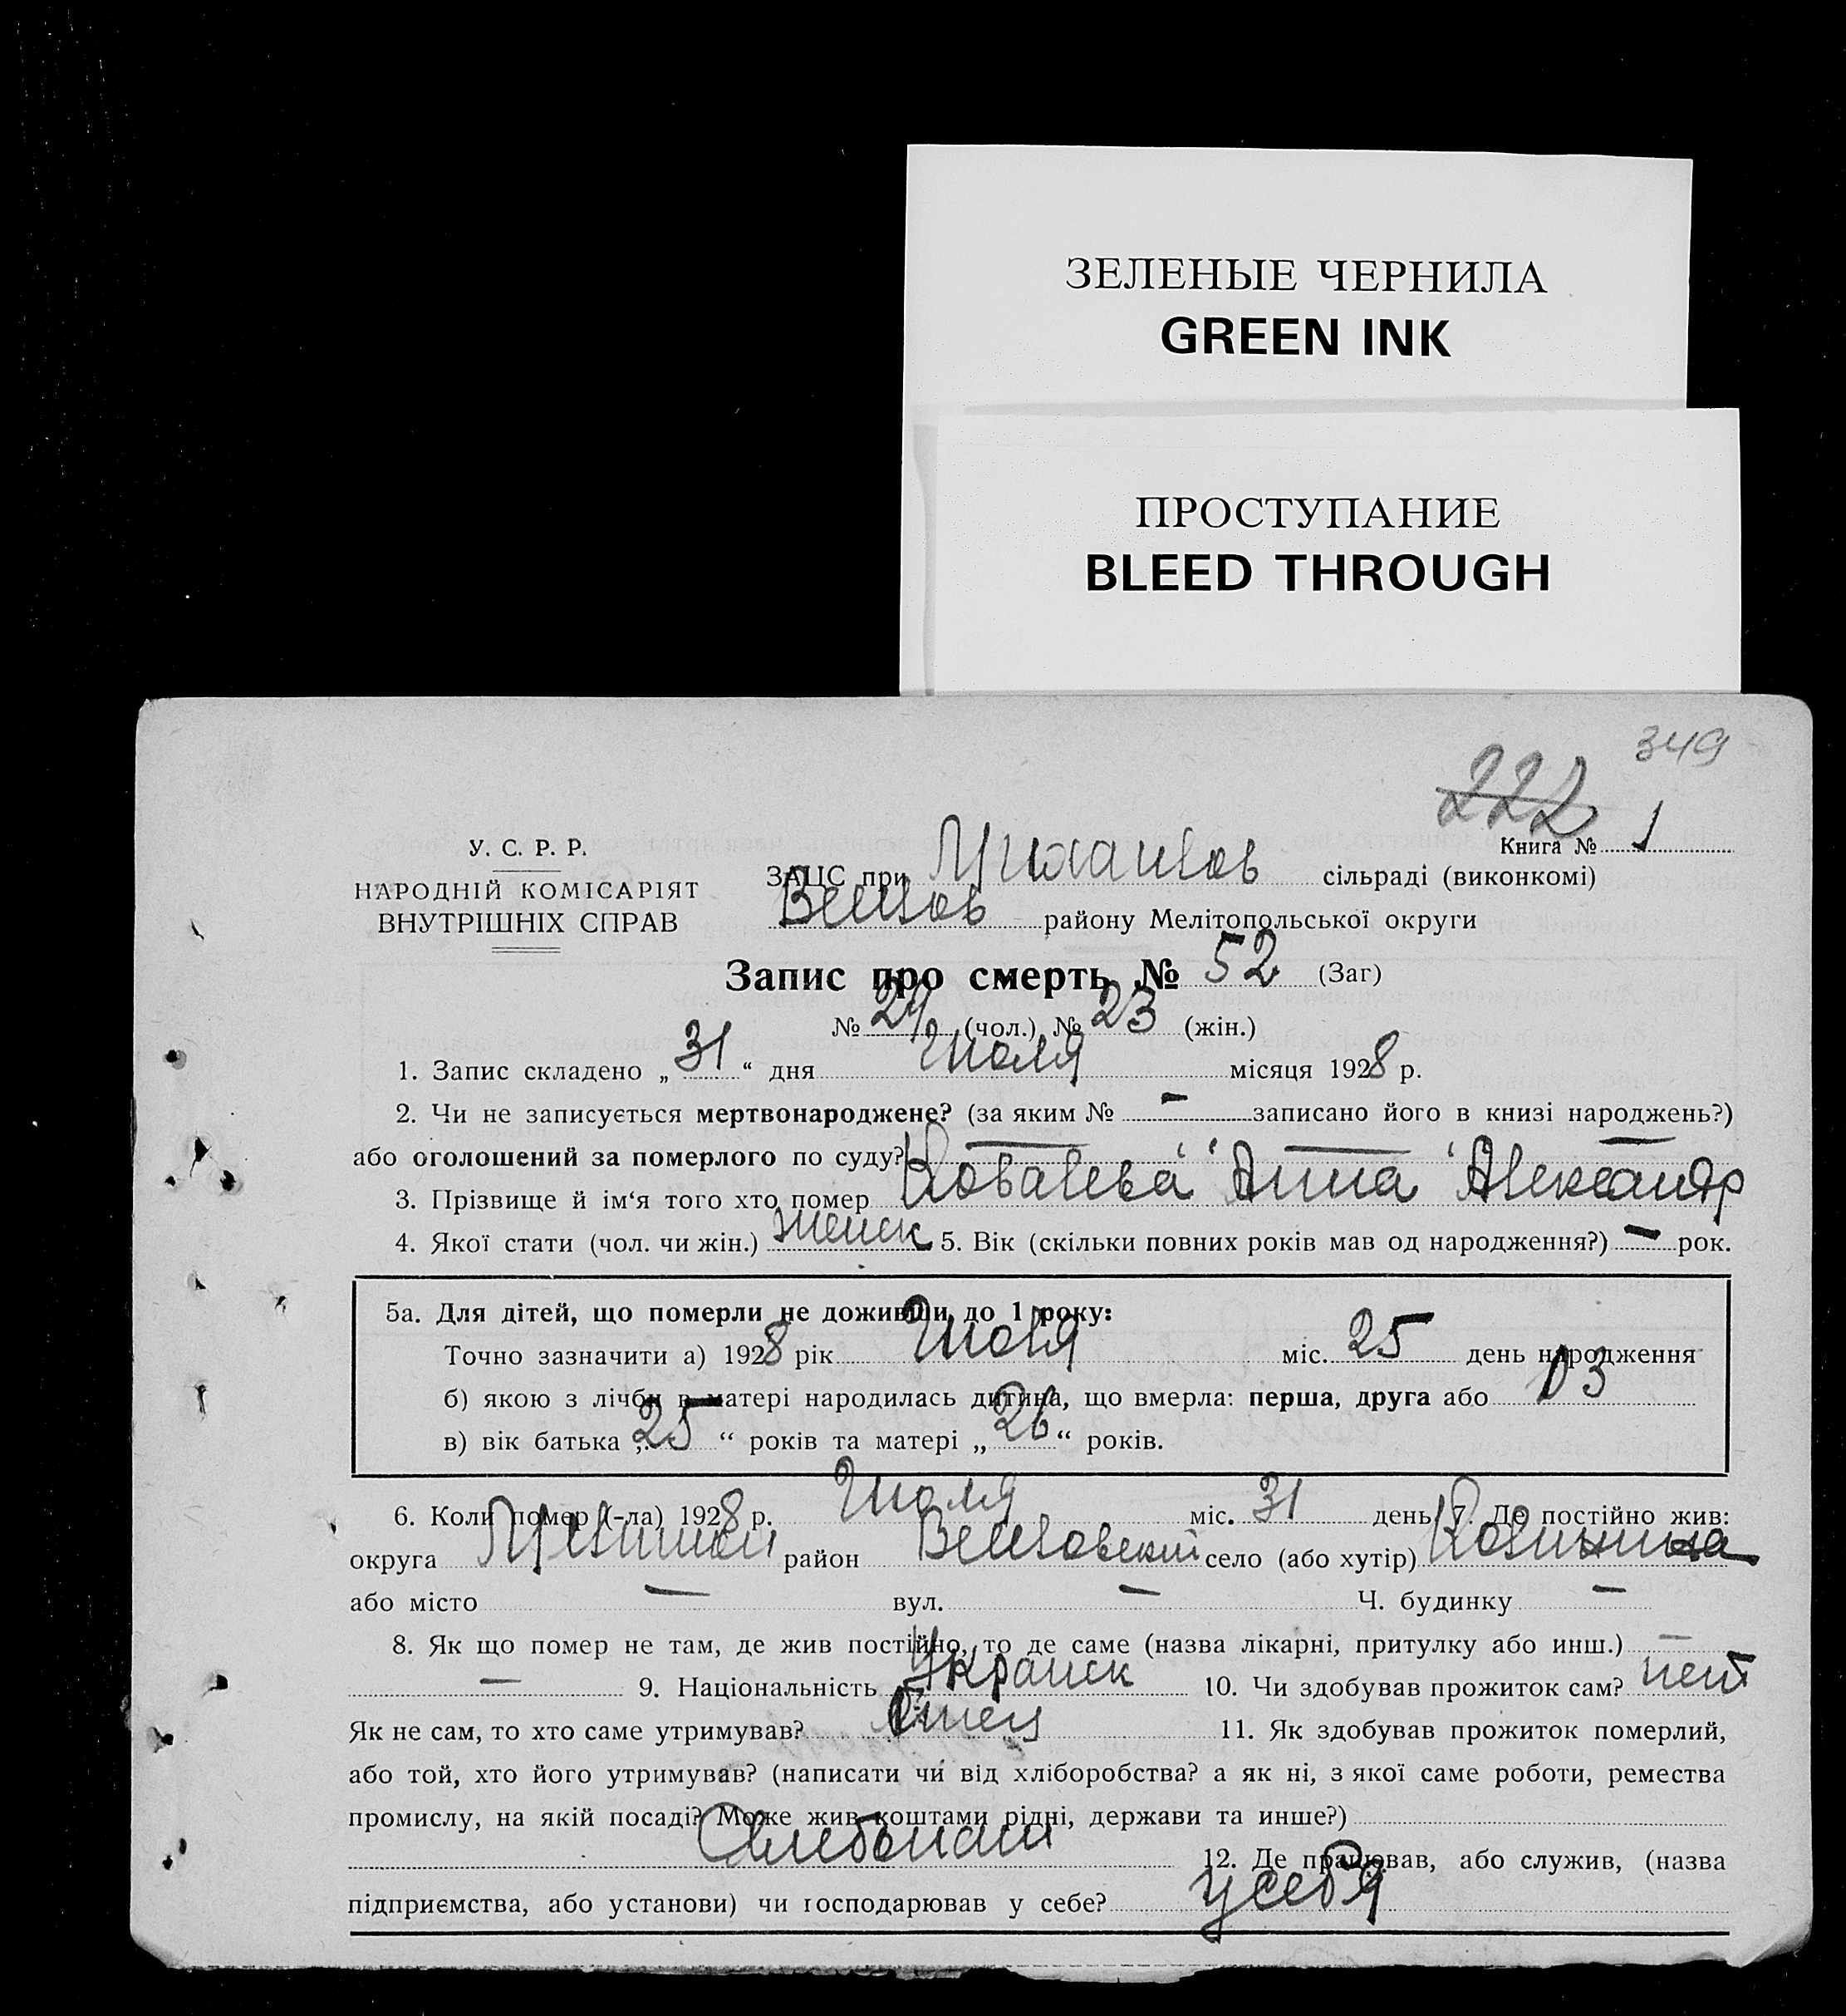 ЗЕЛЕНЫЕ ЧЕРНИЛА
GREEN INK
ПРОСТУПАНИЕ
BLEED THROUGH
349
222
Книга № 1
У. С. Р. Р.
НАРОДНІЙ КОМІСАРІЯТ
ВНУТРІШНІХ СПРАВ
ЗАЦС при Михайлов сільраді (виконкомі)
Веселов району Мелітопольської округи
Запис про смерть № 52 (Заг)
№ 29 (чол.) № 23 (жін.)
1. Запис складено „ 31 “ дня Июля місяця 1928 р.
2. Чи не записується мертвонароджене? (за яким № – записано його в книзі народжень?)
або оголошений за померлого по суду?
3. Прізвище й ім‘я того хто помер Ковалева Анна Александр
4. Якої стати (чол. чи жін.) женск 5. Вік (скільки повних років мав од народження?) – рок.
5а. Для дітей, що померли не доживши до 1 року:
Точно зазначити а) 1928 рік Июля міс. 25 день народження
б) якою з лічби в матері народилась дитина, що вмерла: перша, друга або 3
в) вік батька „ 25 “ років та матері „ 26 “ років.
6. Коли помер (-ла) 1928 р. Июля міс. 31 день 7. Де постійно жив:
округа район село (або хутір)
або місто – вул. – Ч. будинку –
8. Як що помер не там, де жив постійно, то де саме (назва лікарні, притулку або инш.) –
– 9. Національність Украинск 10. Чи здобував прожиток сам? нет
Як не сам, то хто саме утримував? Отец 11. Як здобував прожиток померлий,
або той, хто його утримував? (написати чи від хліборобства? а як ні, з якої саме роботи, ремества
промислу, на якій посаді? Може жив коштами рідні, держави та инше?)
Хлебопаш 12. Де працював, або служив, (назва
підприємства, або установи) чи господарював у себе? у себя